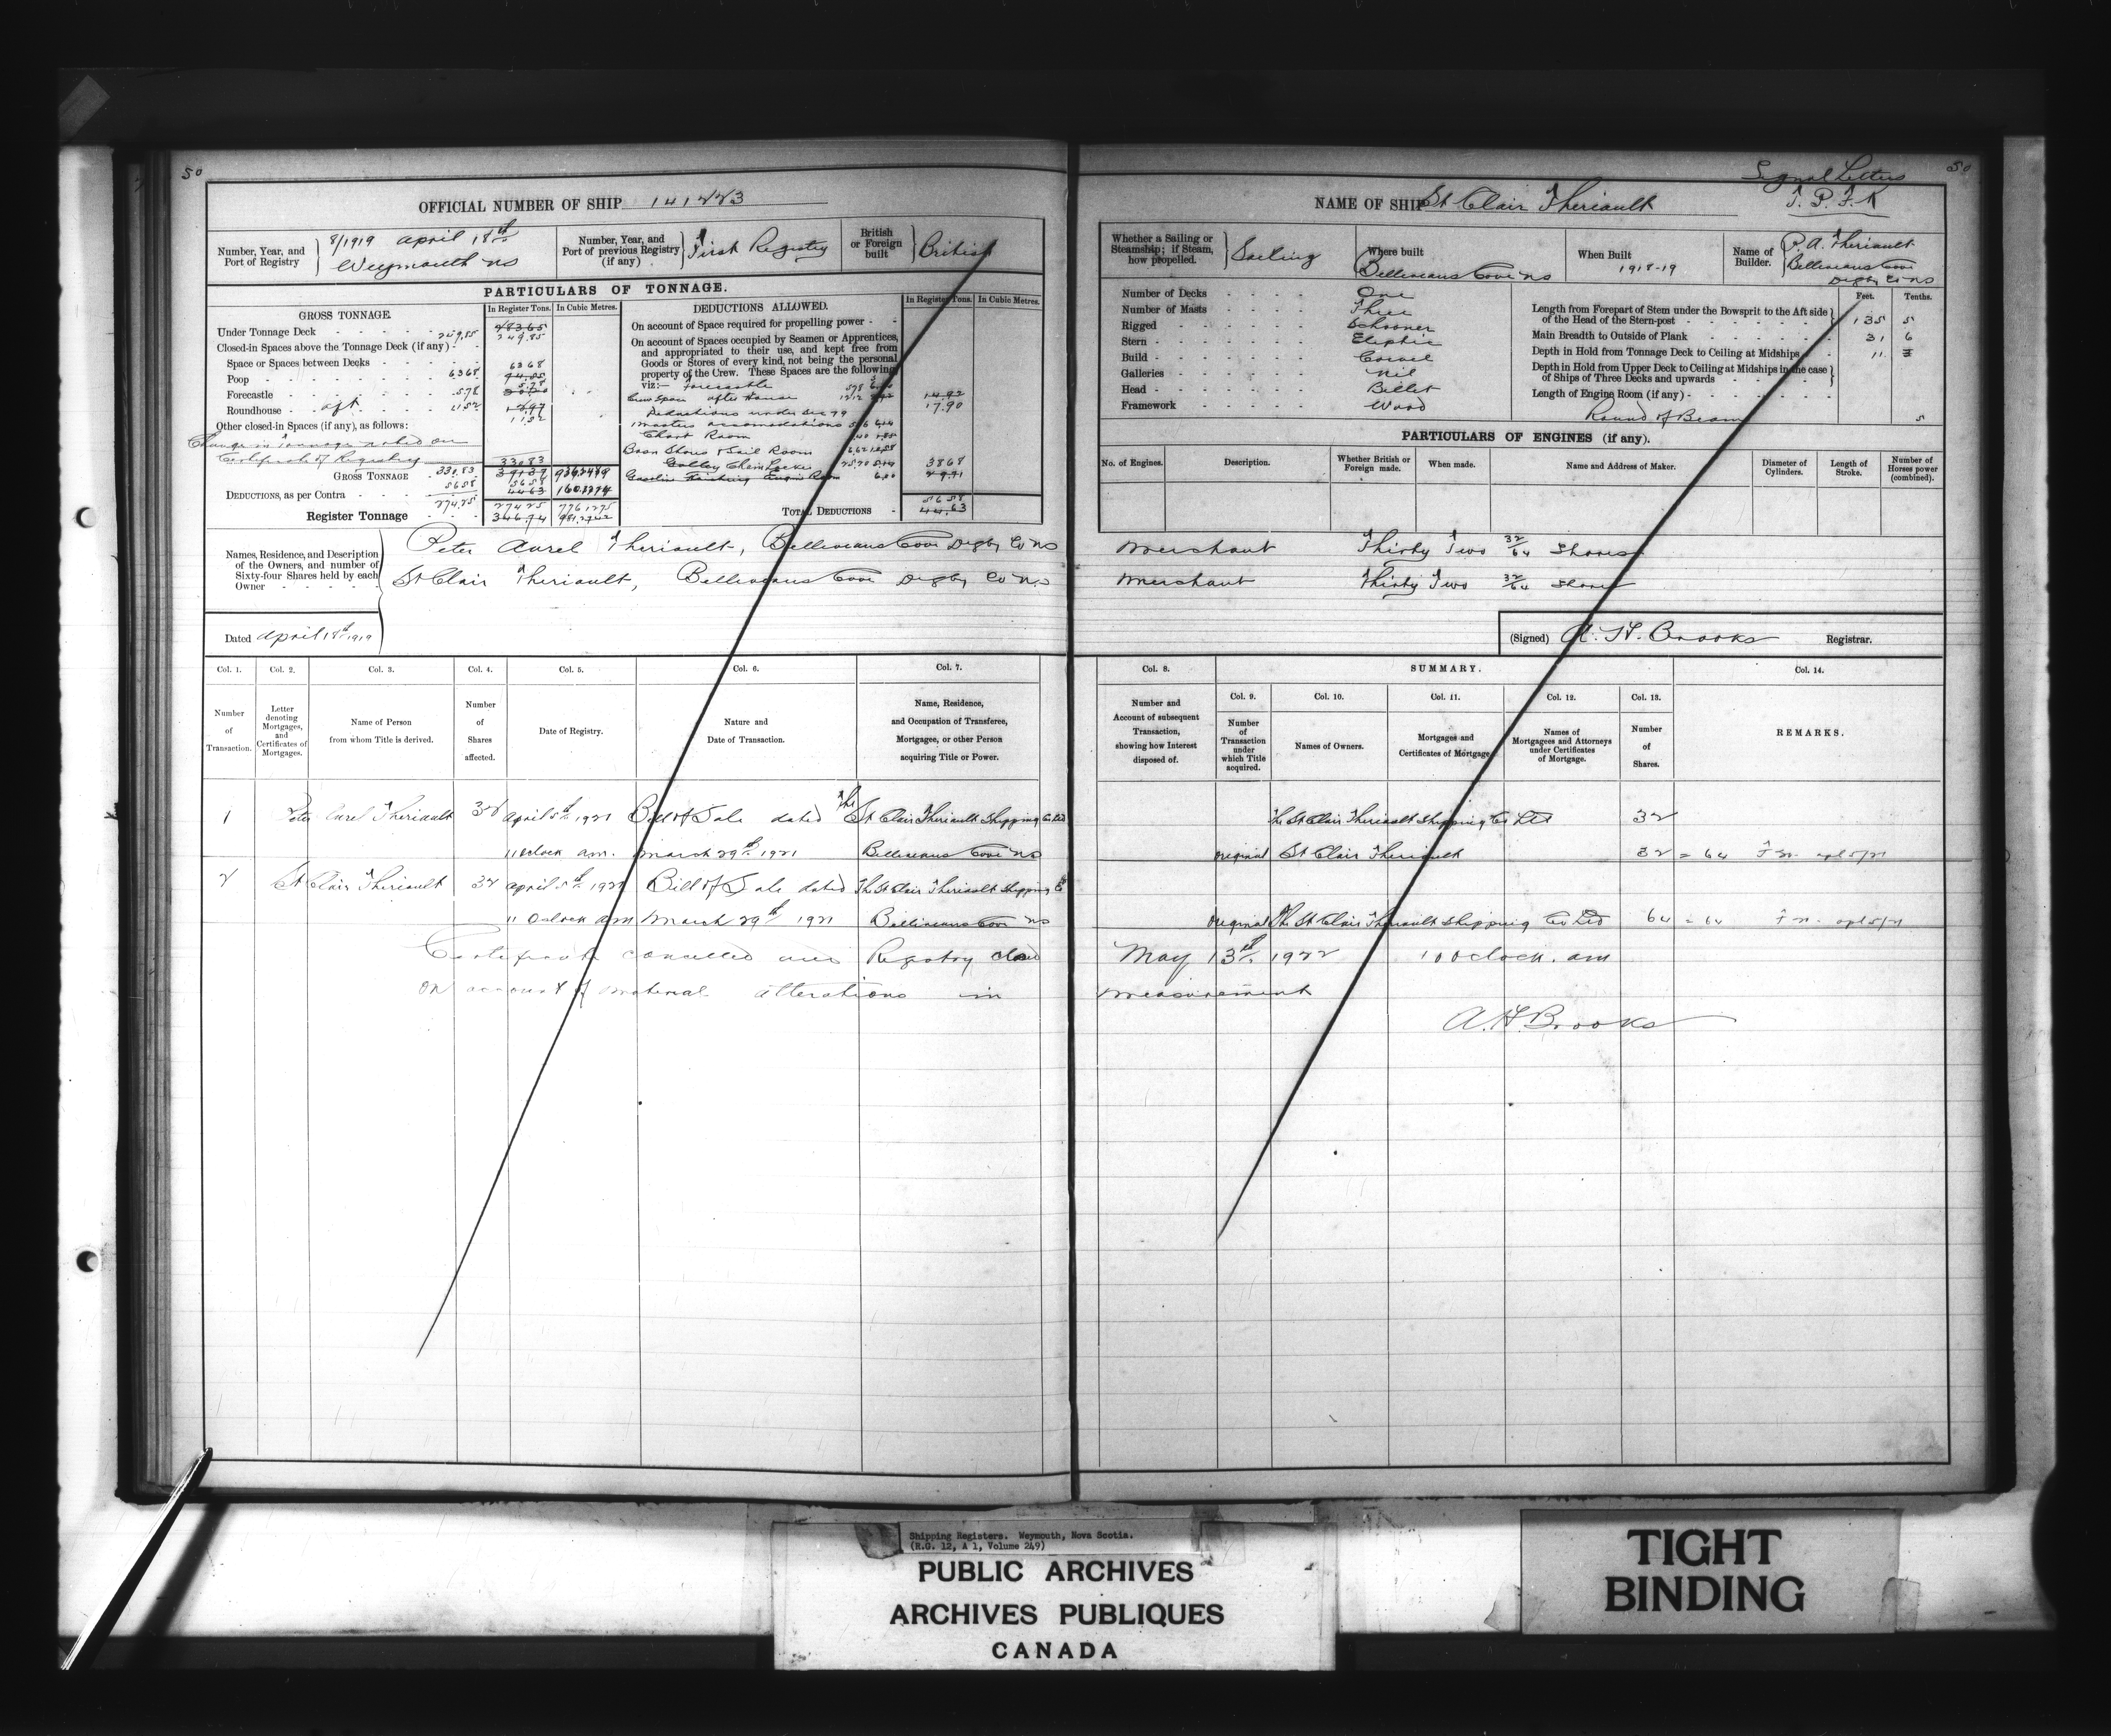 50
OFFICIAL NUMBER OF SHIP 141223
Number, Year, and Port of Registry
8/1919 April 18th
Weymouth NS
Number, Year, and Port of previous Registry (if any)
First Registry
British or Foreign built
British
PARTICULARS OF TONNAGE.
GROSS TONNAGE.
In Register Tons.
In Cubic Metres.
Under Tonnage Deck 249.85
249.85
Closed-in Spaces above the Tonnage Deck (if any)
Space or Spaces between Decks
Poop 63.68
63.68
Forecastle 5.78
5.78
Roundhouse aft 11.52
11.52
Other closed-in Spaces (if any), as follows:
Change in Tonnage noted on
Certificate of Registry
GROSS TONNAGE 330.83
330.83
391.37
DEDUCTIONS, as per Contra 56.58
56.58
44.63
Register Tonnage 274.25
274.25 776.1275
346.74
DEDUCTIONS ALLOWED.
In Register Tons.
In Cubic Metres.
On account of Space required for propelling power
On account of Spaces occupied by Seamen or Apprentices, and appropriated to their use, and kept free from Goods or Stores of every kind, not being the personal property of the Crew. These Spaces are the following, viz:-
Forecastle 5.78
Crew Space after House 12.12
14.92
17.90
Deductions under Sec 79
Masters accomodations
Chart Room
Bosn Stores & Sail Room
Galley Chain Locker
38.68
Gasoline Hoisting Engine Room 6.00
TOTAL DEDUCTIONS
56.58
44.63
Names, Residence, and Description of the Owners, and number of Sixty-four Shares held by each Owner
Peter Aurel Theriault, Belliveaus Cove Digby Co NS
St Clair Theriault, Belliveaus Cove Digby Co NS
Dated April 18th 1919
Col. 1.
Col. 2.
Col. 3.
Col. 4.
Col. 5.
Col. 6.
Col. 7.
Number of Transaction.
Letter denoting Mortgages, and Certificates of Mortgages.
Name of Person from whom Title is derived.
Number of Shares affected.
Date of Registry.
Nature and Date of Transaction.
Name, Residence, and Occupation of Transferee, Mortgagee, or other Person acquiring Title or Power.
1 Peter Aurel Theriault 32 April 5th 1921 Bill of Sale dated The St Clair Theriault Shipping Co Ltd
11 Oclock am. March 29th 1921 Belliveaus Cove NS
2 St Clair Theriault 32 April 5th 1921 Bill of Sale dated The St Clair Theriault Shipping Co
11 Oclock am March 29th 1921 Belliveaus Cove NS
Certificate cancelled and Registry closed
on account of material alterations in
Signal Letters
50
T.P.F.K
NAME OF SHIP St Clair Theriault
Whether a Sailing or Steamship; if Steam, how propelled.
Sailing
Where built
Belliveaus Cove NS
When Built
1918-19
Name of Builder.
P. A. Theriault
Belliveaus Cove
Digby Co NS
Number of Decks One
Number of Masts Three
Rigged Schooner
Stern Eliptic
Build Carvel
Galleries Nil
Head Billet
Framework Wood
Feet. Tenths.
Length from Forepart of Stem under the Bowsprit to the Aft side of the Head of the Stern-post 135 5
Main Breadth to Outside of Plank 31 6
Depth in Hold from Tonnage Deck to Ceiling at Midships 11
Depth in Hold from Upper Deck to Ceiling at Midships in the case of Ships of Three Decks and upwards
Length of Engine Room (if any)
Round of Beam 5
PARTICULARS OF ENGINES (if any).
No. of Engines.
Description.
Whether British or Foreign made.
When made.
Name and Address of Maker.
Diameter of Cylinders.
Length of Stroke.
Number of Horses power (combined).
Merchant Thirty Two 32/64 Shares
Merchant Thirty Two 32/64 Shares
(Signed) A. H. Brooks Registrar.
Col. 8.
SUMMARY.
Col. 14.
Col. 9.
Col. 10.
Col. 11.
Col. 12.
Col. 13.
Number and Account of subsequent Transaction, showing how Interest disposed of.
Number of Transaction under which Title acquired.
Names of Owners.
Mortgages and Certificates of Mortgage
Names of Mortgagees and Attorneys under Certificates of Mortgage.
Number of Shares.
REMARKS.
The St Clair Theriault Shipping Co Ltd 32
original St Clair Theriault 32 = 64
original The St Clair Theriault Shipping Co Ltd 64 = 64
May 13th 1922 10 Oclock. am
measurement
A. H. Brooks
Shipping Registers. Weymouth, Nova Scotia.
(R.G. 12, A 1, Volume 249)
PUBLIC ARCHIVES
ARCHIVES PUBLIQUES
CANADA
TIGHT
BINDING